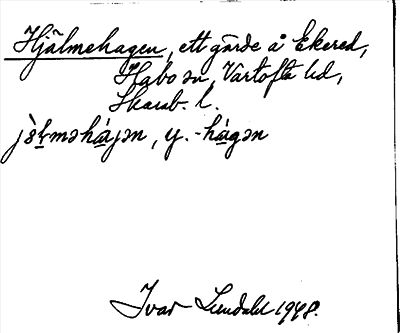 Hjälmehagen, ett gärde å Ekered,
Habo sn, Vartofta hd,
Skarab. l.
jè̀ḷməhá̱jən, y. -há̱gən
Ivar Lundahl 1948.